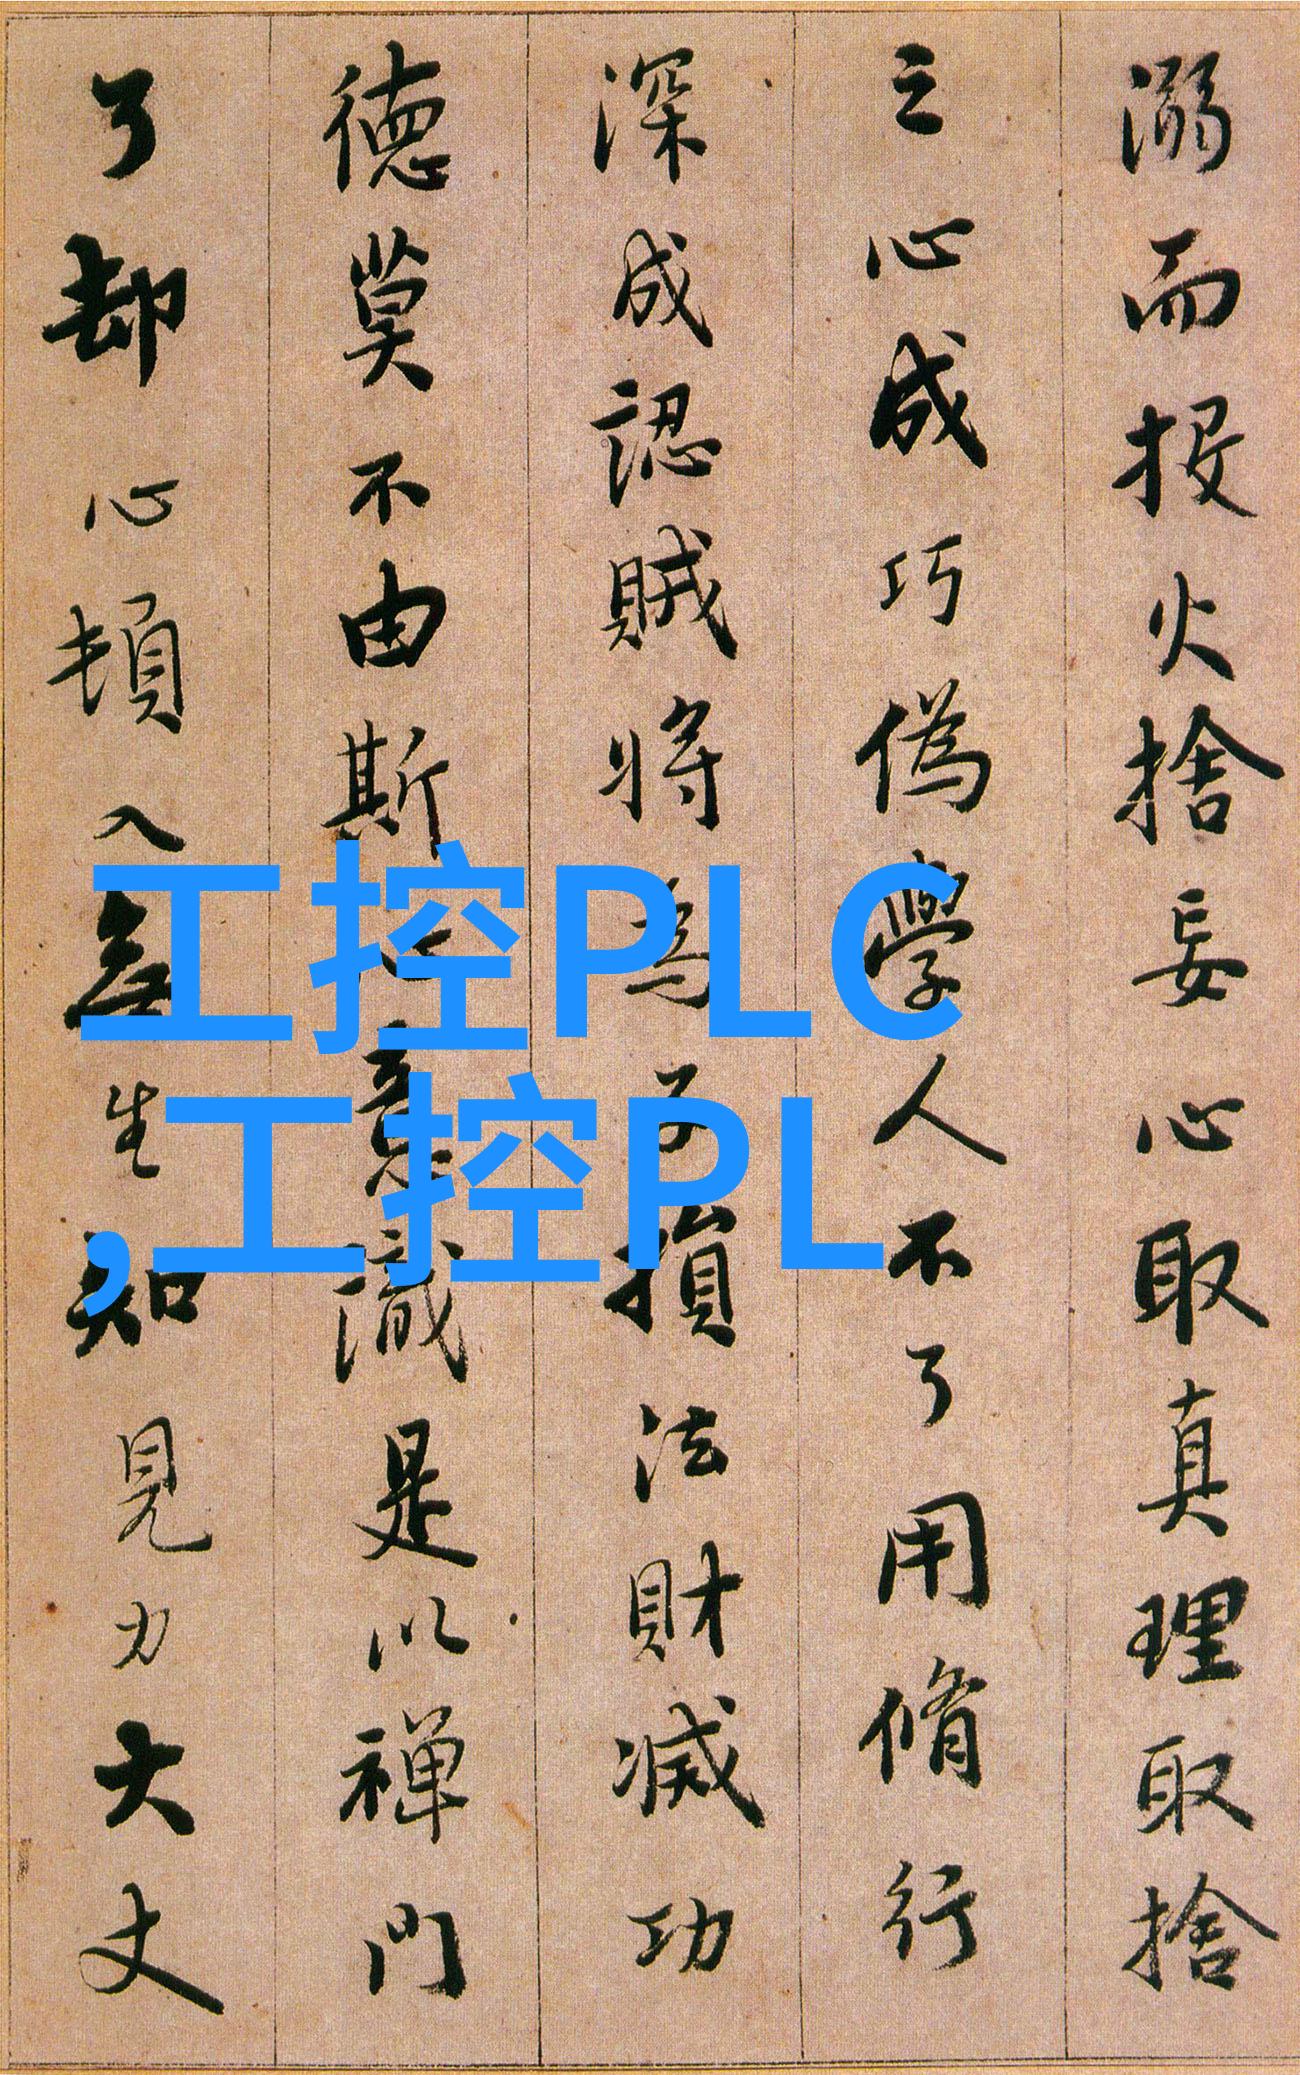 溺而投火捨妄心取真理取捨
之心成巧偽學人不了用脩行
深成認賊將為子損法財滅功
德莫不由斯心意識是以禪門
了却心頓入無生知見力大丈
工控PLC
,工控PL